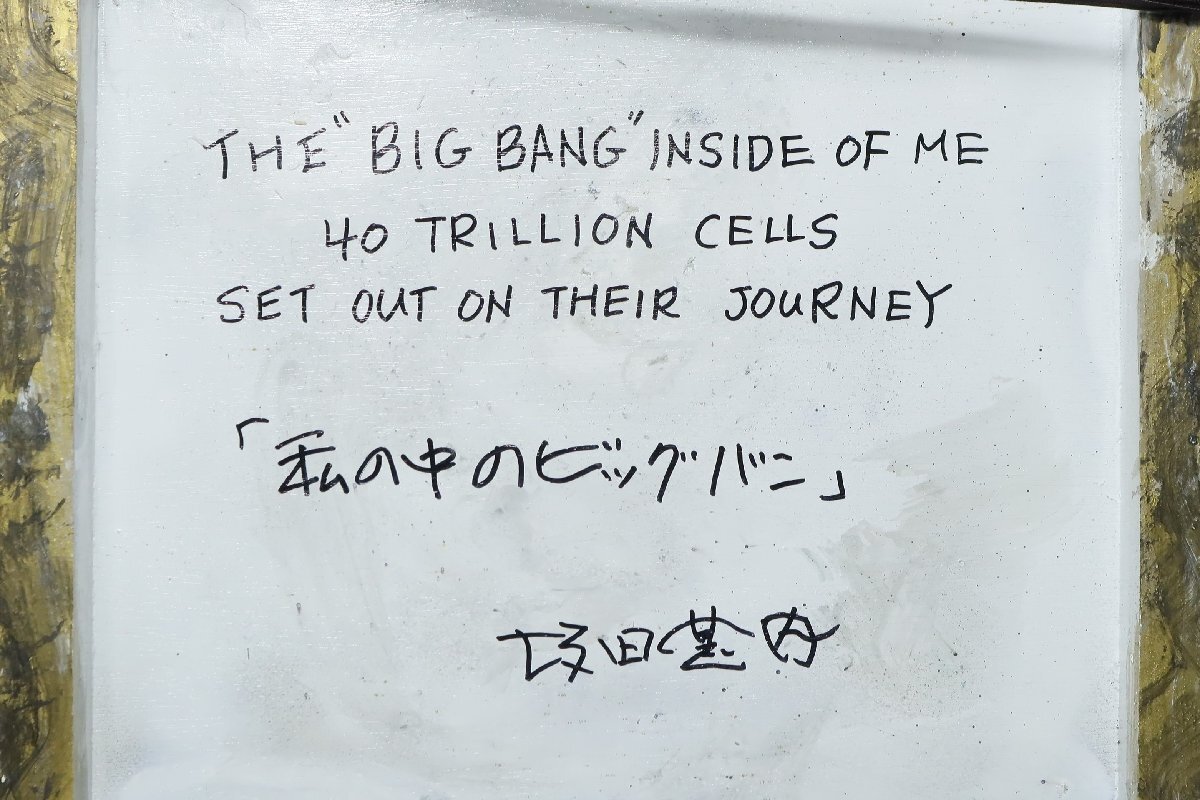 THE "BIG BANG" INSIDE OF ME
40 TRILLION CELLS
SET OUT ON THEIR JOURNEY
「私の中のビッグバン」
坂田甚内